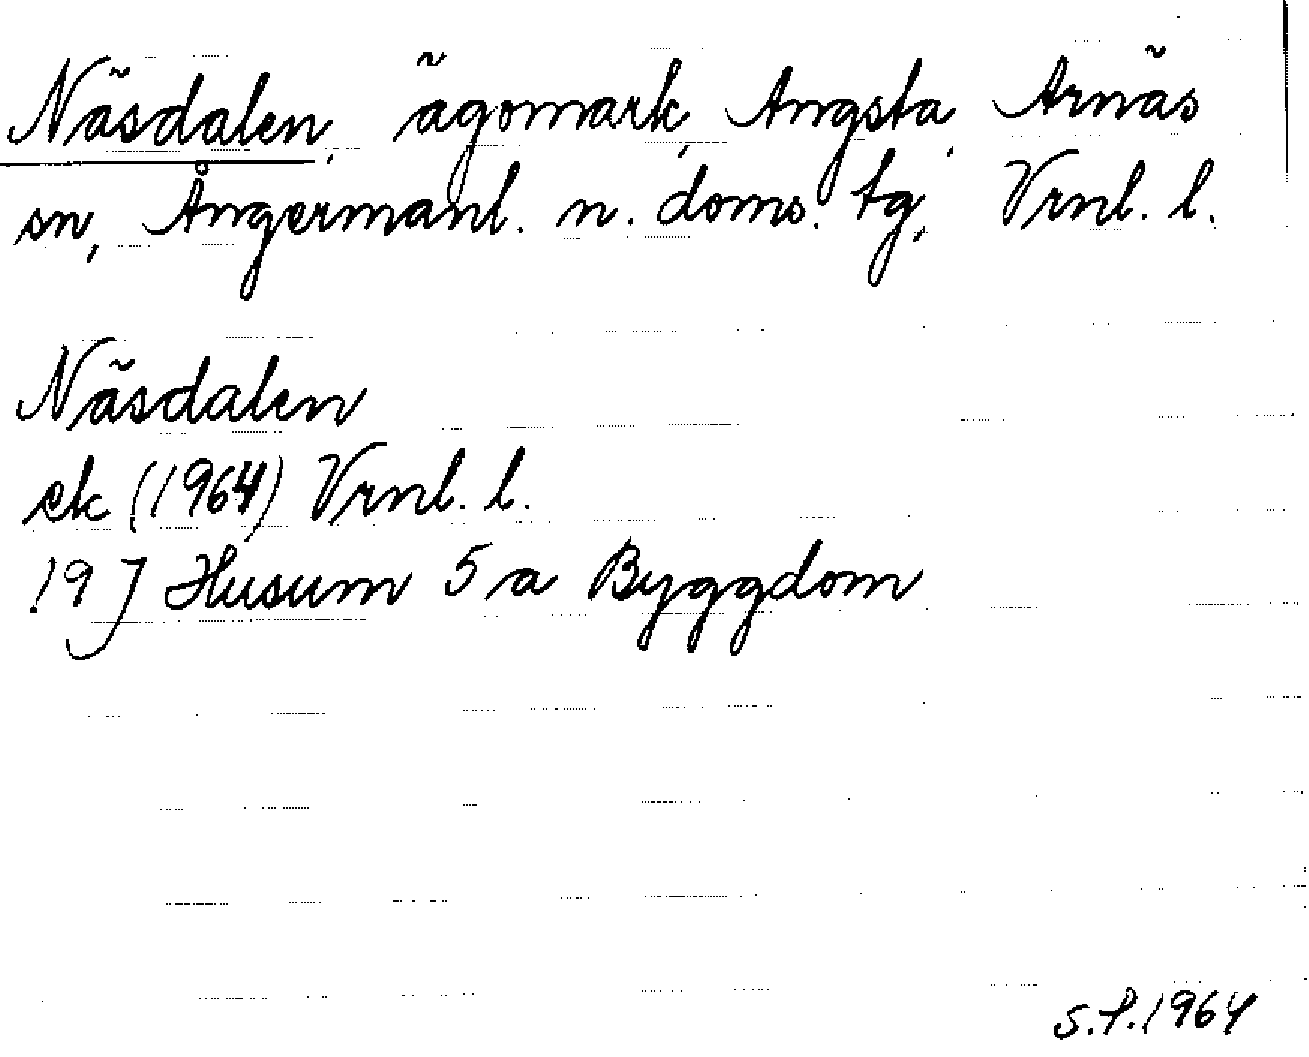 Näsdalen, ägomark, Angsta, Arnäs
sn, Ångermanl. n. doms. tg, Vrnl. l.
Näsdalen
ek (1964) Vrnl. l.
19 J Husum 5 a Byggdom
S.P. 1964